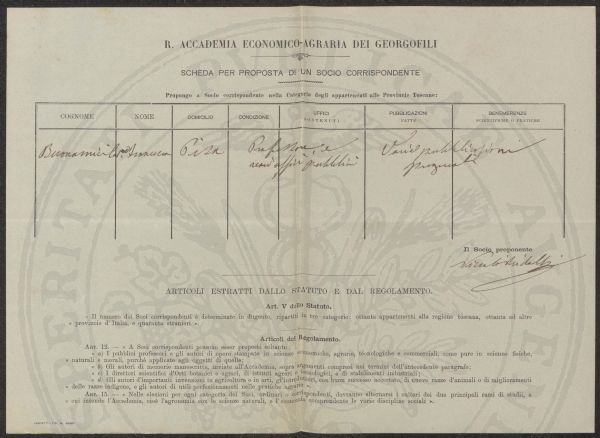 R. ACCADEMIA ECONOMICO-AGRARIA DEI GEORGOFILI
SCHEDA PER PROPOSTA DI UN SOCIO CORRISPONDENTE
Propongo a Socio corrispondente nella Categoria degli appartenenti alle Provincie Toscane:
COGNOME NOME DOMICILIO CONDIZIONE UFFICI PUBBLICAZIONI BENEMERENZE
OTTENUTI FATTE SCIENTIFICHE O PRATICHE
Buonamici Francesco Pisa Professore e Varie pubblicazioni
varii uffici pubblici
Il Socio proponente
ARTICOLI ESTRATTI DALLO STATUTO E DAL REGOLAMENTO.
Art. V dello Statuto.
« Il numero dei Soci corrispondenti è determinato in dugento, ripartiti in tre categorie: ottanta appartenenti alla regione toscana, ottanta ad altre
« provincie d'Italia, e quaranta stranieri ».
Articoli del Regolamento.
ART. 12. — « A Soci corrispondenti possono esser proposti soltanto:
« a) I pubblici professori e gli autori di opere stampate in scienze economiche, agrarie, tecnologiche e commerciali, come pure in scienze fisiche,
« naturali e morali, purchè applicate agli oggetti di quelle;
« b) Gli autori di memorie manoscritte, inviate all'Accademia, sopra argomenti compresi nei termini dell'antecedente paragrafo;
« c) I direttori scientifici d'Orti botanici o agrari, d'istituti agrari o tecnologici, e di stabilimenti industriali;
« d) Gli autori d'importanti invenzioni in agricoltura o in arti, gl'introduttori, con buon successo accertato, di nuove razze d'animali o di miglioramenti
« delle razze indigene, e gli autori di utili perfezionamenti nelle pratiche agrarie ».
ART. 15. — « Nelle elezioni per ogni categoria dei Soci, ordinari o corrispondenti, dovranno alternarsi i cultori dei due principali rami di studii, a
« cui intende l'Accademia, cioè l'agronomia con le scienze naturali, e l'economia comprendente le varie discipline sociali ».